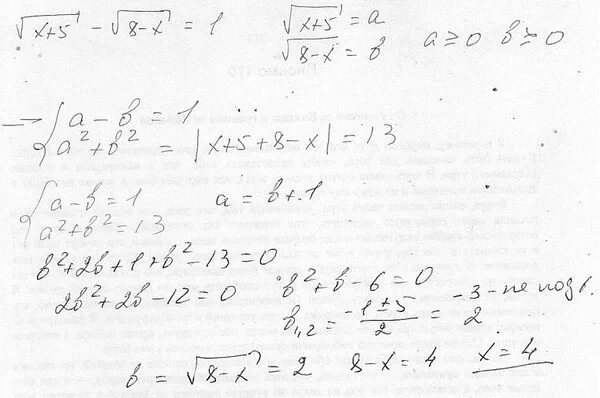 √(x+5) − √(8−x) = 1
√(x+5) = a
√(8−x) = b
a ≥ 0 b ≥ 0
→ { a − b = 1
a² + b² = |x+5+8−x| = 13
{ a − b = 1 a = b+1
a² + b² = 13
b² + 2b + 1 + b² − 13 = 0
2b² + 2b − 12 = 0
b² + b − 6 = 0
b₁,₂ = (−1 ± 5)/2 = −3 − не под
2
b = √(8−x) = 2 8−x = 4 x = 4